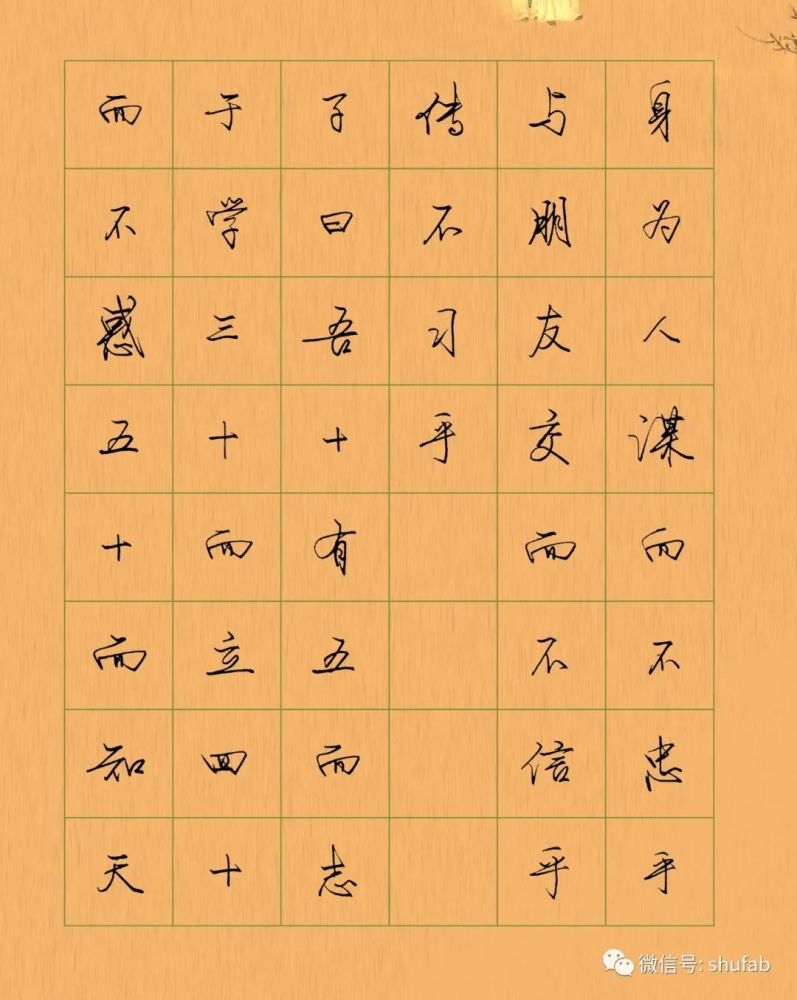 身为人谋而不忠乎
与朋友交而不信乎
传不习乎
子曰吾十有五而志
于学三十而立四十
而不惑五十而知天
微信号: shufab